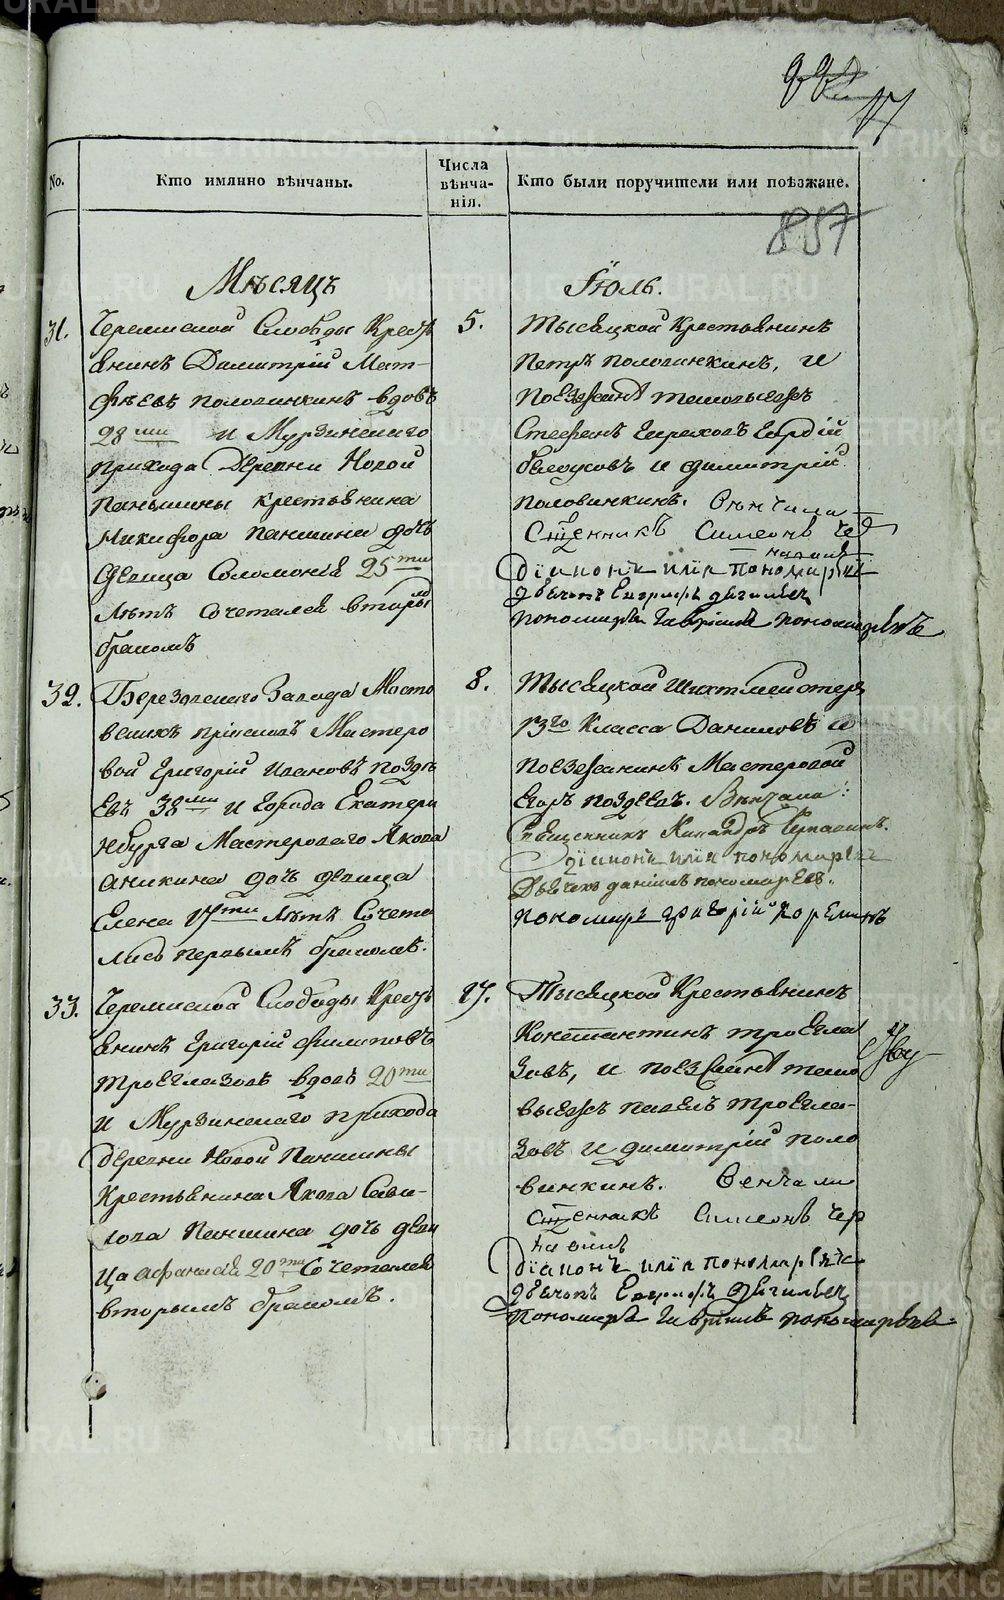 857
No.
Кто имянно вѣнчаны.
Числа вѣнча-нія.
Кто были поручители или поѣзжане.
Мѣсяцъ
Іюль.
31.
Черемиской Слободы Кресть
янинъ Димитрій Мат-
фѣевъ половинкинъ вдовъ
28 ми и Мурзинскаго
прихода Деревни Новой
паньшины крестьянина
Никифора паншина дочь
девица Соломонія 25 ти
лѣтъ Сочетался вторы
бракомъ
5.
Тысяцкой Крестьянинъ
Петръ половинкинъ, и
Стефанъ
и димитрій
половинкинъ. Вѣнчали
Сщенникъ Симеонъ Чер
навинъ
діаконъ илiа пономаревъ
дьячокъ Евграфъ
пономарь Гавріилъ пономаревъ
32.
Березовскаго Завода Мосто
вскихъ пріисковъ Мастеро
вой Григорій Ивановъ поздѣ
евъ 38 ми и города Екатери
нбурга Мастероваго Якова
аникина дочь девица
Елена 17 ти лѣтъ Сочета
лись первымъ бракомъ.
8.
Тысяцкой Шихтмейстеръ
13 го класса Даниловъ и
поезжанинъ Мастеровой
Егоръ поздеевъ. Вѣнчали:
Священникъ
діаконъ илiа пономаревъ
Дьячекъ даніилъ пономаревъ.
пономарь григорій Корелинъ
33.
Черемиской Слободы Кресть
янинъ Григорій филиповъ
Троеглазовъ вдовъ 20 ти
и Мурзинскаго прихода
деревни Новой Паншины
Крестьянина Якова Сави-
нова Паншина дочь деви
ца афанасія 20 ти Сочетался
вторымъ бракомъ.
17.
Тысяцкой Крестьянинъ
Константинъ троегла
зовъ, и
павелъ троегла-
зовъ и димитрій поло
винкинъ. Венчали
Сщенникъ Симеонъ Чер
навинъ
діаконъ илiа пономаревъ
дьячокъ Евграфъ
пономарь Гавріилъ пономаревъ
METRIKI.GASO-URAL.RU